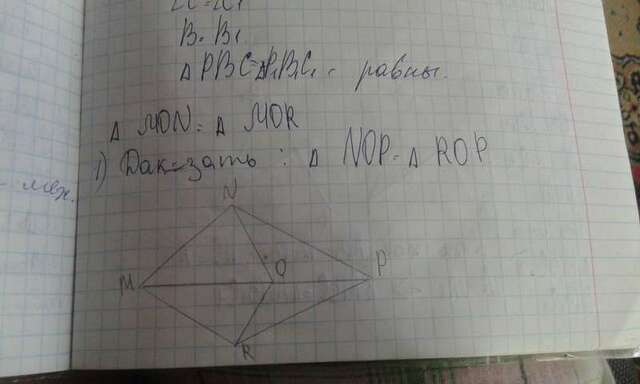 ∠C=∠C₁
B=B₁
△PBC=△P₁B₁C₁ - равны.
△ MON=△ MOR
1) Док-зать: △ NOP=△ ROP
N
M O P
R